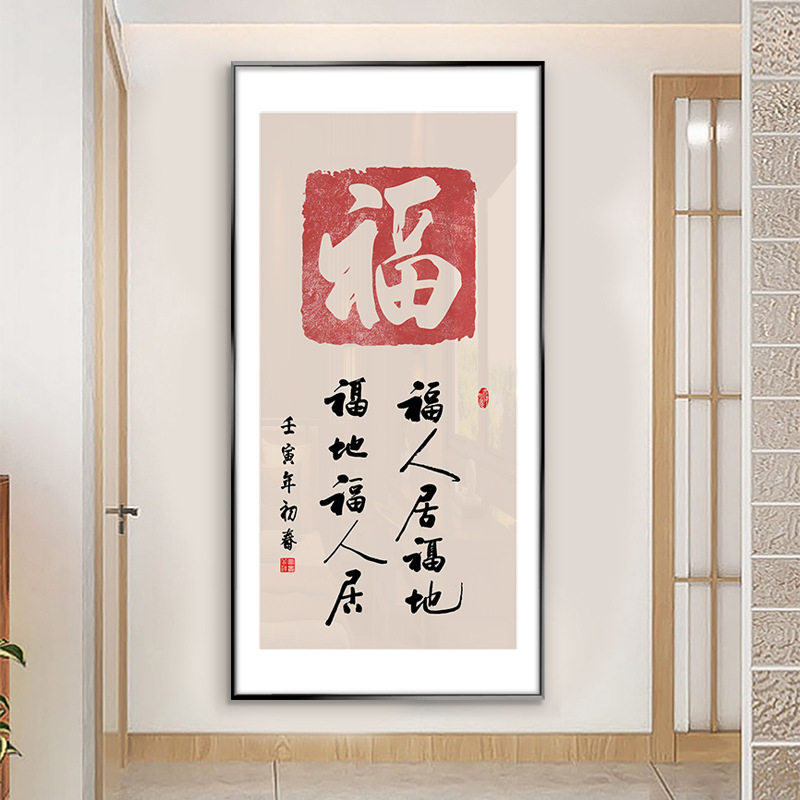 福
福人居福地
福地福人居
壬寅年初春